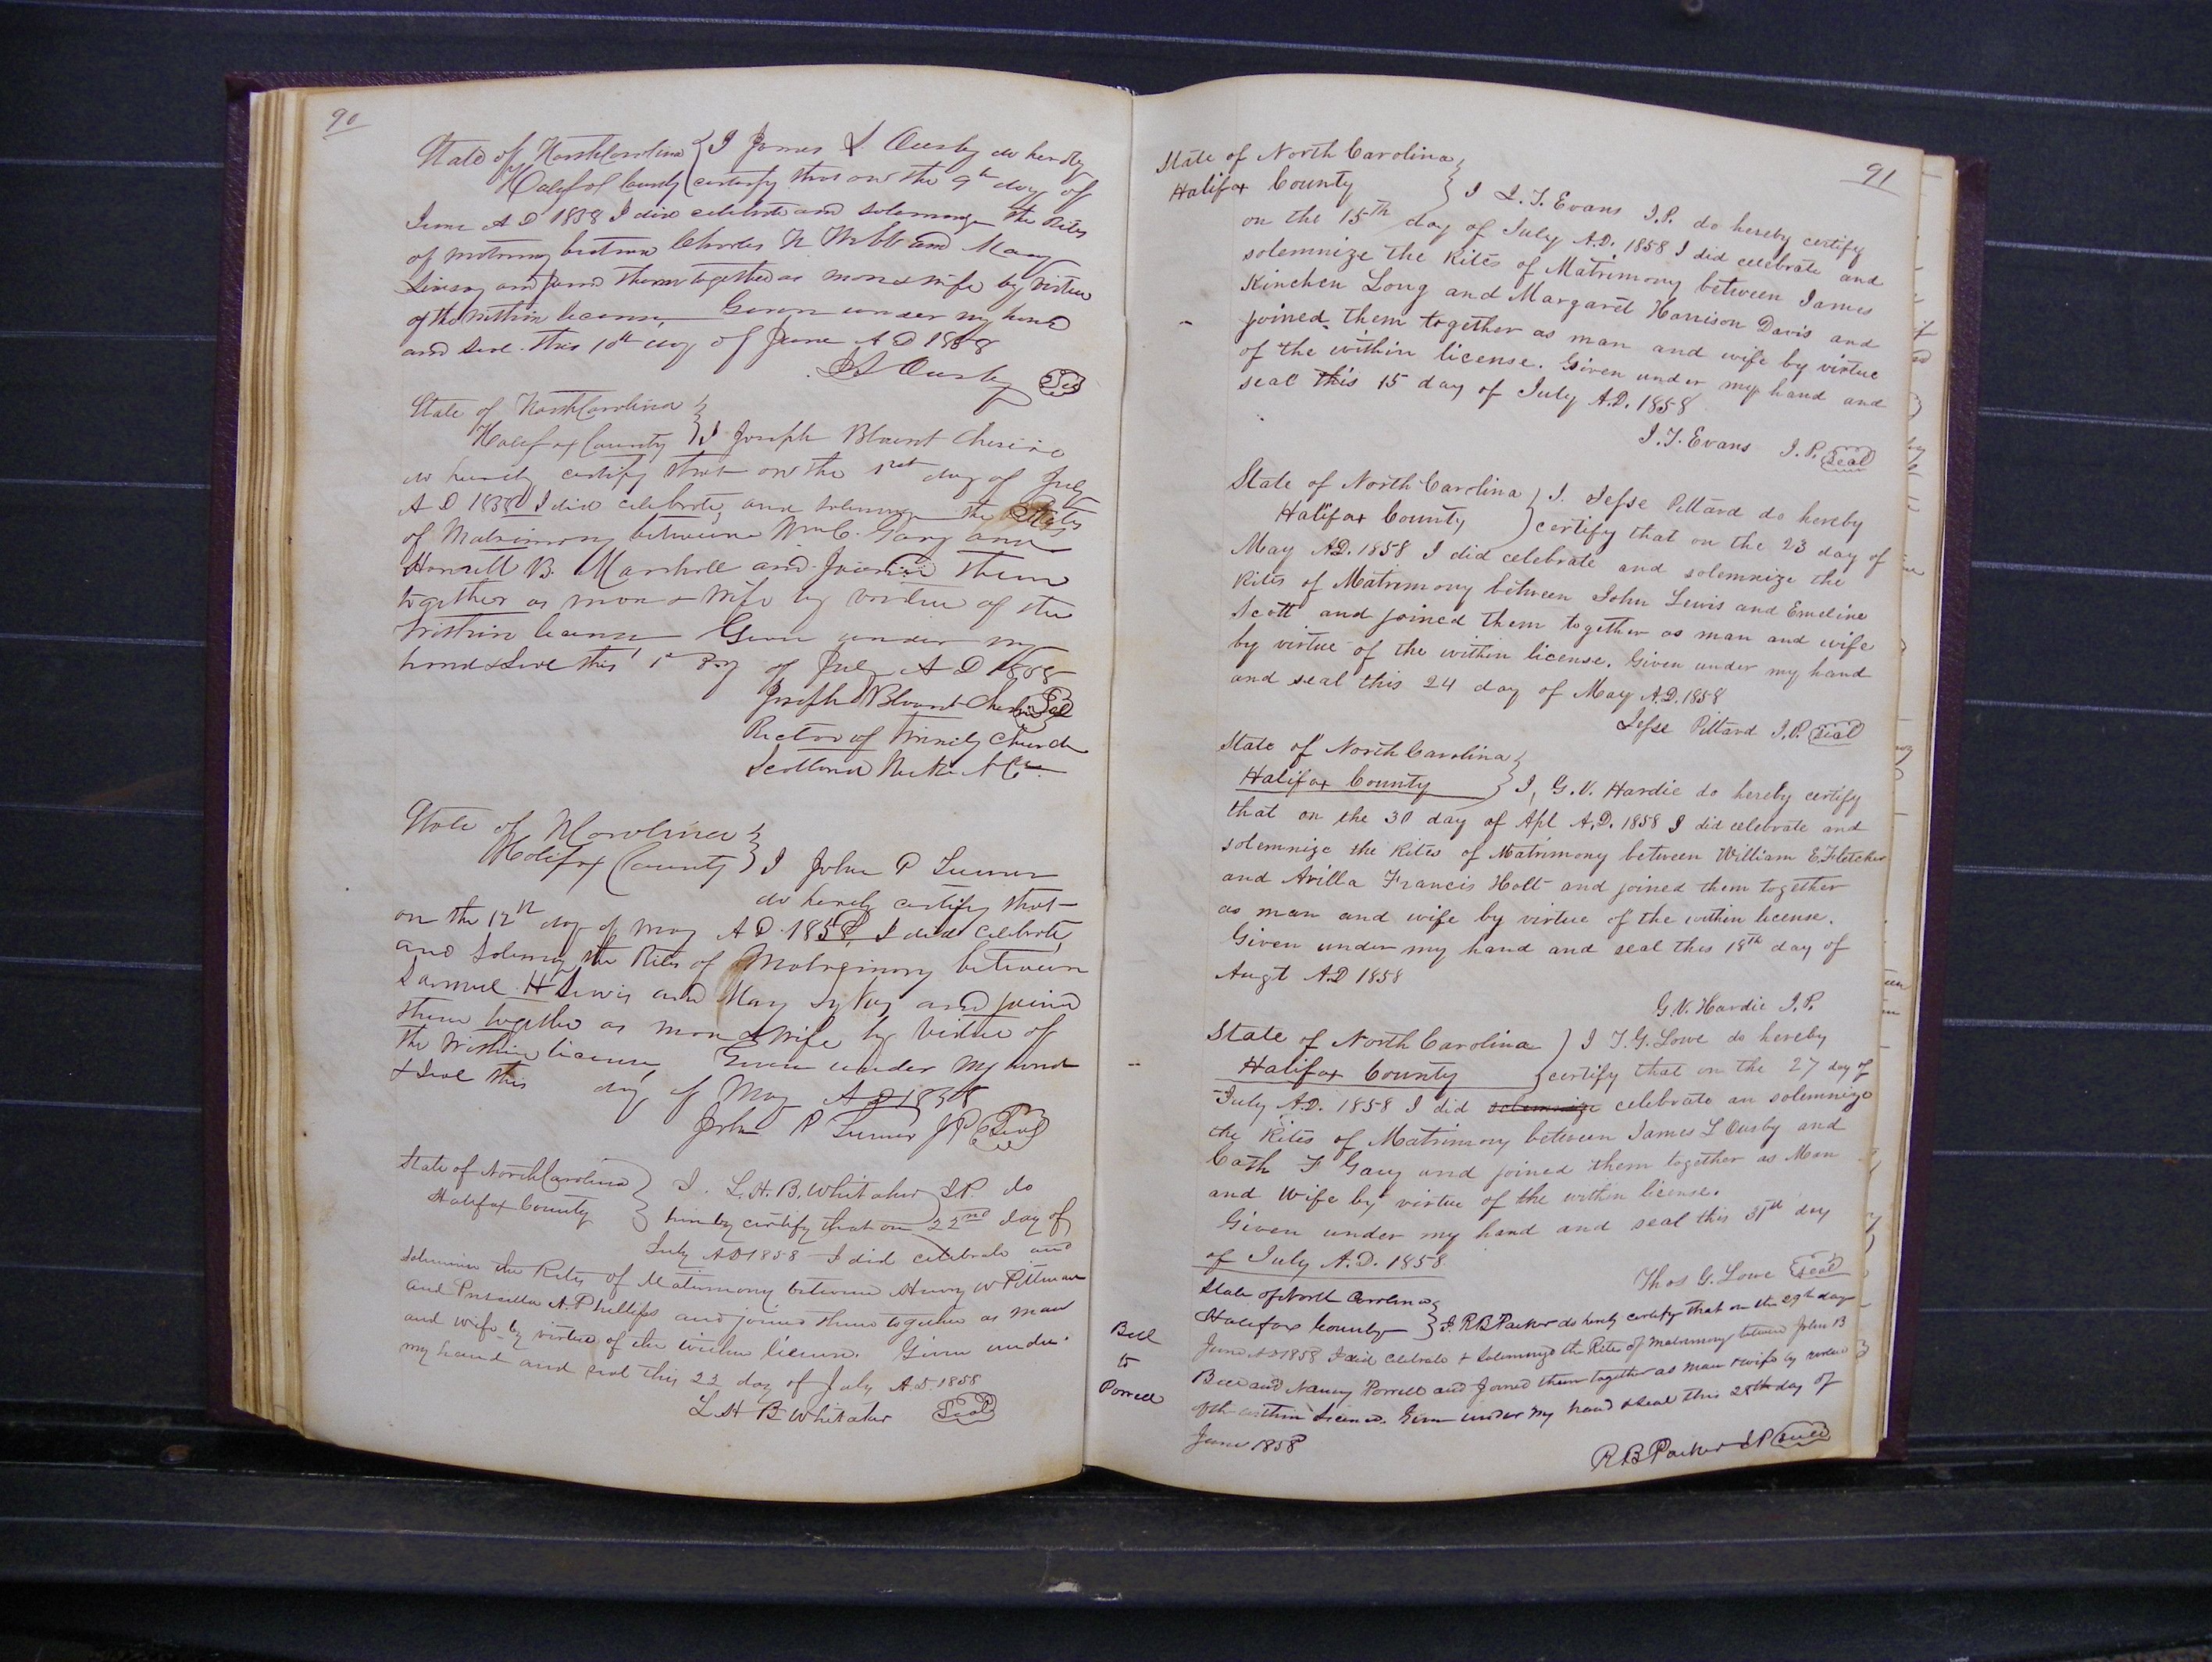 90
State of North Carolina } I James L Ousby do hereby
Halifax County } certify that on the 9th day of
June A D 1858 I did celebrate and solemnize the Rites
of matrimony between Charles N Webb and Mary
and joined them together as man & wife by virtue
of the within license, Given under my hand
and seal this 10th day of June A D 1858
J L Ousby Seal
State of North Carolina }
Halifax County } I Joseph Blount Cheshire
do hereby certify that on the 1st day of July
A D 1858 I did celebrate and solemnize the Rites
of Matrimony between Wm C. Gary and
B. Marshall and Joined them
together as man & Wife by virtue of the
within license Given under my
hand & Seal this 1st Day of July A D 1858
Joseph Blount Cheshire Seal
Rector of Trinity Church
Scotland Neck N C
State of N Carolina }
Halifax County } I John P
do hereby certify that
on the 12th day of May A D 1858, I did celebrate
and Solemnize the Rites of Matrimony between
Samuel H Lewis and Mary and joined
them together as man & Wife by virtue of
the Within license, Given under My hand
& Seal this day of May A D 1858
John P J P Seal
State of North Carolina }
Halifax County } I. L. H. B. Whitaker J.P. do
hereby certify that on 22nd day of
July A D 1858 I did celebrate and
solemnize the Rites of Matrimony between Henry W Pittman
and Priscilla A. Phillips and joined them together as man
and wife by virtue of the within license. Given under
my hand and seal this 22 day of July A.D. 1858
L H B Whitaker Seal
91
State of North Carolina }
Halifax County } I I. T. Evans J.P. do hereby certify
on the 15th day of July A.D. 1858 I did celebrate and
solemnize the Rites of Matrimony between James
Kinchen Long and Margaret Harrison Davis and
joined them together as man and wife by virtue
of the within license. Given under my hand and
seal this 15 day of July A.D. 1858
I. T. Evans J.P. Seal
State of North Carolina } I. Jesse Pittard do hereby
Halifax County } certify that on the 23 day of
May A.D. 1858 I did celebrate and solemnize the
Rites of Matrimony between John Lewis and Emeline
Scott and joined them together as man and wife
by virtue of the within license. Given under my hand
and seal this 24 day of May A.D. 1858
Jesse Pittard J.P. Seal
State of North Carolina }
Halifax County } I, G. V. Hardie do hereby certify
that on the 30 day of Apl A.D. 1858 I did celebrate and
solemnize the Rites of Matrimony between William E. Fletcher
and Arilla Francis Holt and joined them together
as man and wife by virtue of the within license.
Given under my hand and seal this 18th day of
Augt A.D 1858
G. V. Hardie J.P.
State of North Carolina } I T. G. Lowe do hereby
Halifax County } certify that on the 27 day of
July A.D. 1858 I did solemnize celebrate an solemnize
the Rites of Matrimony between James L Ousby and
Cath F Gary and joined them together as Man
and Wife by virtue of the within license.
Given under my hand and seal this 31st day
of July A.D. 1858
Thos G. Lowe Seal
State of North Carolina }
Halifax County } I. R B Parker do hereby certify that on the 29th day
Bell
to
Porrell
June A D 1858 I did celebrate & solemnize the Rites of matrimony between John B
Bell and Nancy Porrell and Joined them together as man & wife by virtue
of the within License. Given under My hand & Seal this 28th day of
June 1858
R B Parker J P Seal